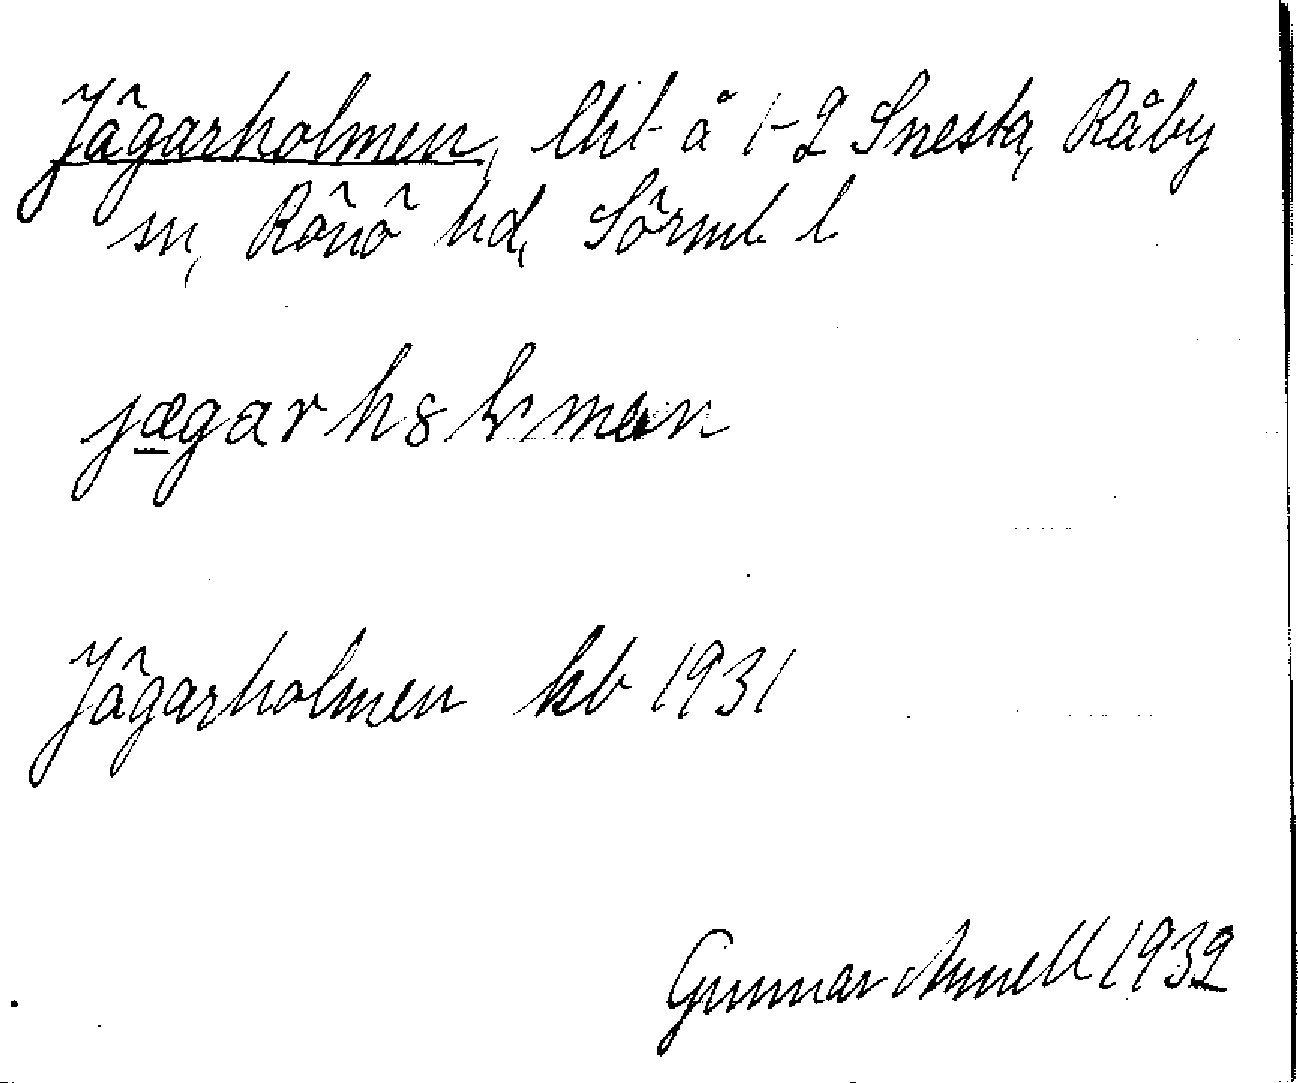 Jägarholmen, lht å 1-2 Snesta, Råby
sn, Rönö hd, Sörml. l
Jägarholmen kb 1931
Gunnar Annell 1932